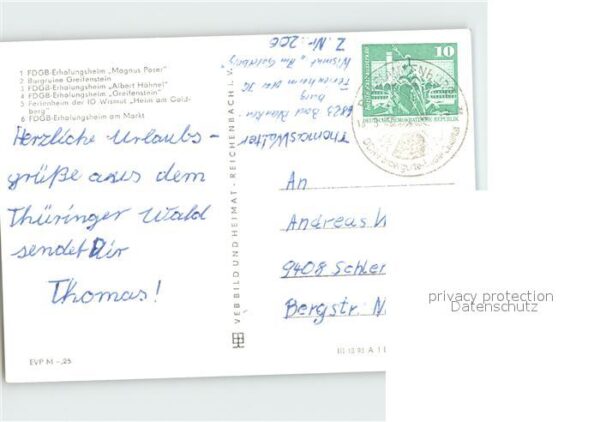 1 FDGB-Erholungsheim „Magnus Poser"
2 Burgruine Greifenstein
3 FDGB-Erholungsheim „Albert Hähnel"
4 FDGB-Erholungsheim „Greifenstein"
5 Ferienheim der IG Wismut „Heim am Gold-
berg"
6 FDGB-Erholungsheim am Markt
Herzliche Urlaubs-
grüße aus dem
Thüringer Wald
sendet Dir
Thomas!
EVP M -,25
VEB BILD UND HEIMAT · REICHENBACH i. V.
Thomas Walter
6823 Bad Blanken-
burg
Ferienheim der IG
Wismut „Am Goldberg"
Z. Nr.: 206
10
DEUTSCHE DEMOKRATISCHE REPUBLIK
An
Andreas W
9408 Schle
Bergstr. N
III/18/95 A 1
privacy protection
Datenschutz